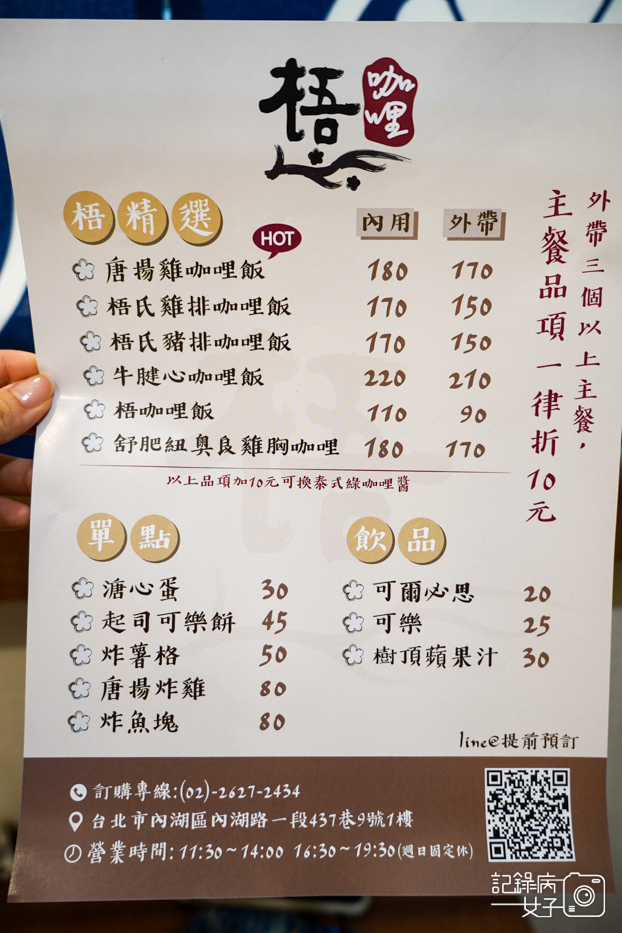 梧
咖哩
梧精選
HOT
內用 外帶
唐揚雞咖哩飯 180 170
梧氏雞排咖哩飯 170 150
梧氏豬排咖哩飯 170 150
牛腱心咖哩飯 220 210
梧咖哩飯 110 90
舒肥紐奧良雞胸咖哩 180 170
以上品項加10元可換泰式綠咖哩醬
外帶三個以上主餐，
主餐品項一律折10元
單點
溏心蛋 30
起司可樂餅 45
炸薯格 50
唐揚炸雞 80
炸魚塊 80
飲品
可爾必思 20
可樂 25
樹頂蘋果汁 30
line@提前預訂
訂購專線:(02)-2627-2434
台北市內湖區內湖路一段437巷9號1樓
營業時間: 11:30~14:00 16:30~19:30(週日固定休)
記錄病
女子